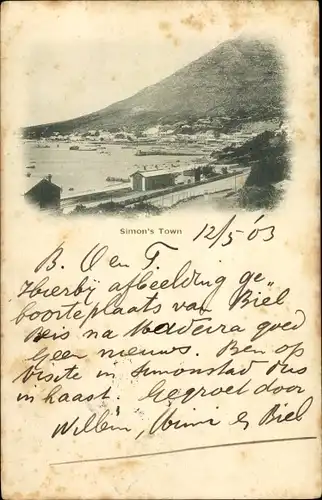 Simon's Town
12/5 '03
B. O en T.
Hierbij afbeelding ge
boorteplaats van Biel
Reis na Madeira goed
Geen nieuws. Ben op
visite in Simonstad dus
in haast. Gegroet door
Willem, Wimi & Biel